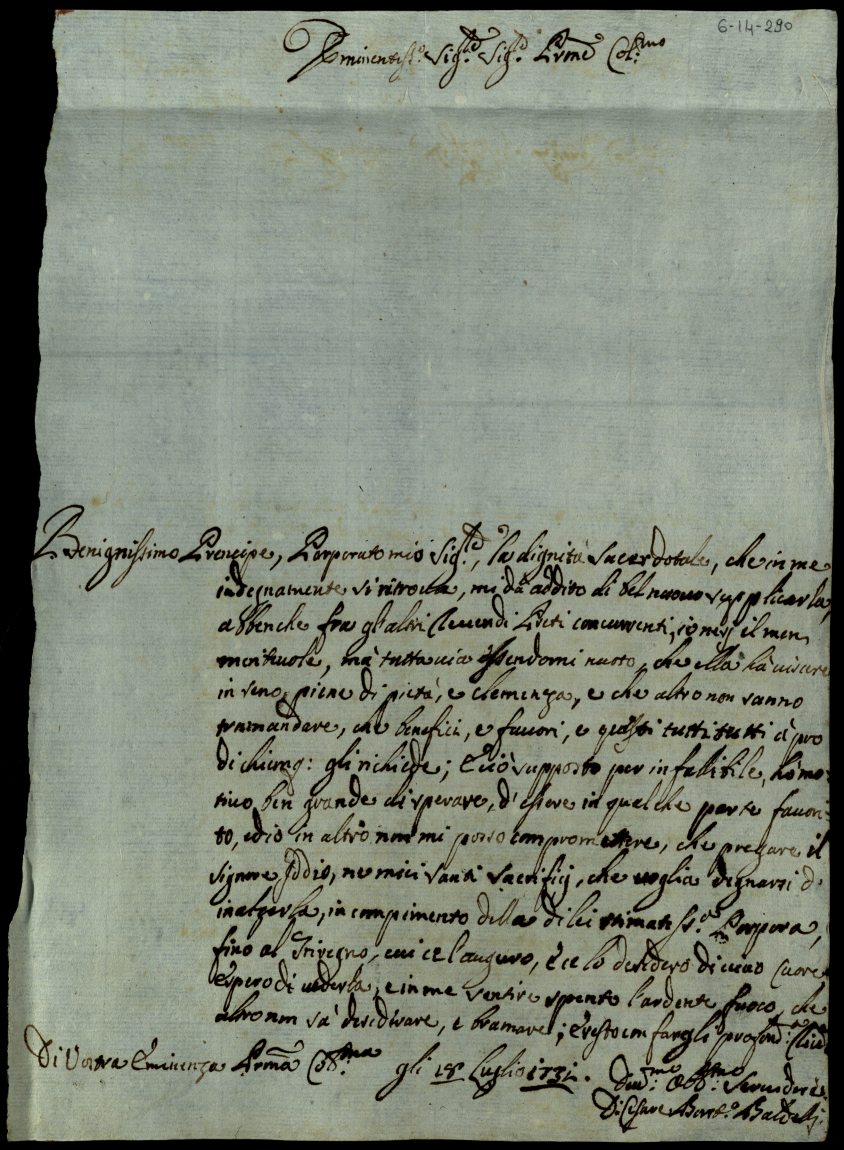 6-14-290
Eminentiss.o Sig.re Sig.re P.rne Col.mo
Benignissimo Prencipe, Porporato mio Sig.re, la dignità sacerdotale, che in me
indegnamente si ritroua, mi dà addito di bel nuouo supplicarla,
abbenche fra gl'altri Reuerendi Preti concurrenti, io nesij il men
meriteuole, mà tuttauia essendomi nuoto, che ella hà uiscere
in seno, piene di pietà, e clemenza, e che altro non sanno
tramandare, che benefici, e fauori, e questi tutti tutti à pro
di chiunq: gli richiede; E ciò supposto per infallibile, hò mo-
tiuo ben grande di sperare, d'essere in qualche parte fauori-
to, ed io in altro non mi posso compromettere, che pregare il
Signore Iddio, ne miei santi sacrifizij, che uoglia degnarsi d'
inalzarla, in compimento della di lei stimatiss.a Porpora,
fino al Triregno, cui ce l'auguro, è ce lo desidero di uiuo Cuore
e spero di uederla, e in me sentire spento l'ardente fuoco, che
altro non sà desiderare, e bramare; è resto con fargli profond.
Di Vostra Eminenza P.rma Col.ma gli 18 Luglio 1731.
Deu.mo Obb.mo Seruidore
Di Cesare Baldelli